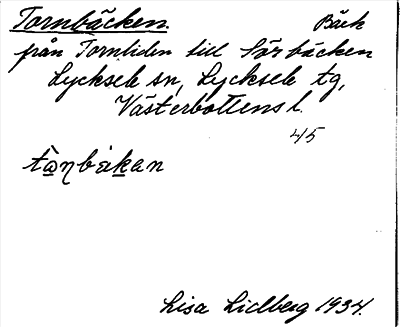 Tornbäcken. Bäck
från Tornliden till Sörbäcken
Lycksele sn, Lycksele tg,
Västerbottens l.
45
Lisa Lidberg 1934.